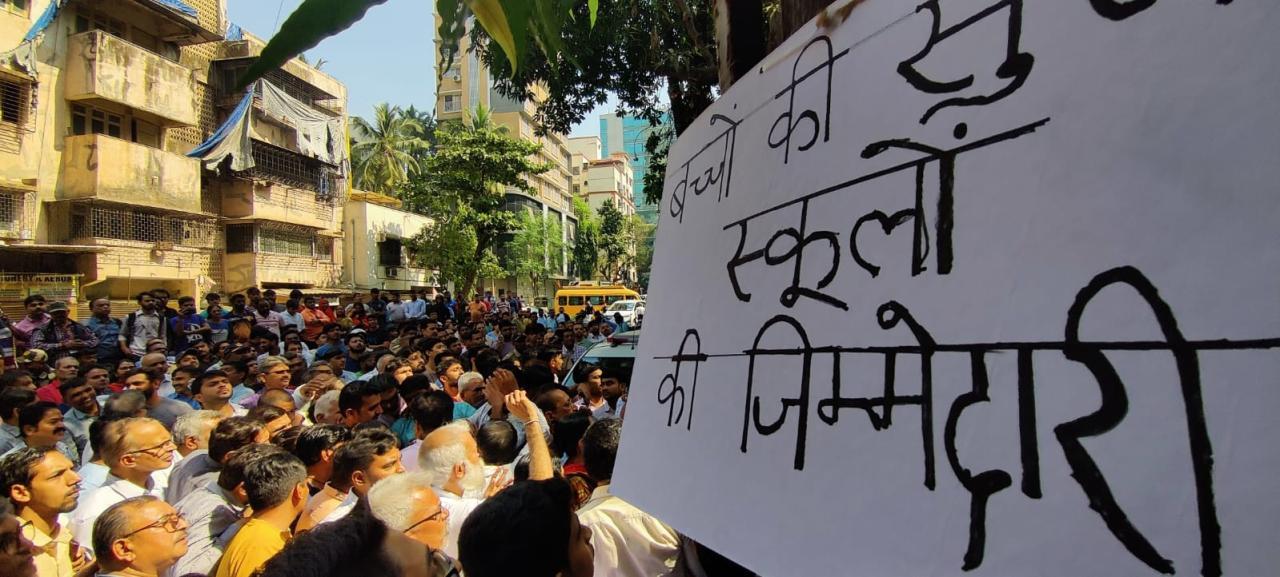 बच्चों की
स्कूलों
की जिम्मेदारी